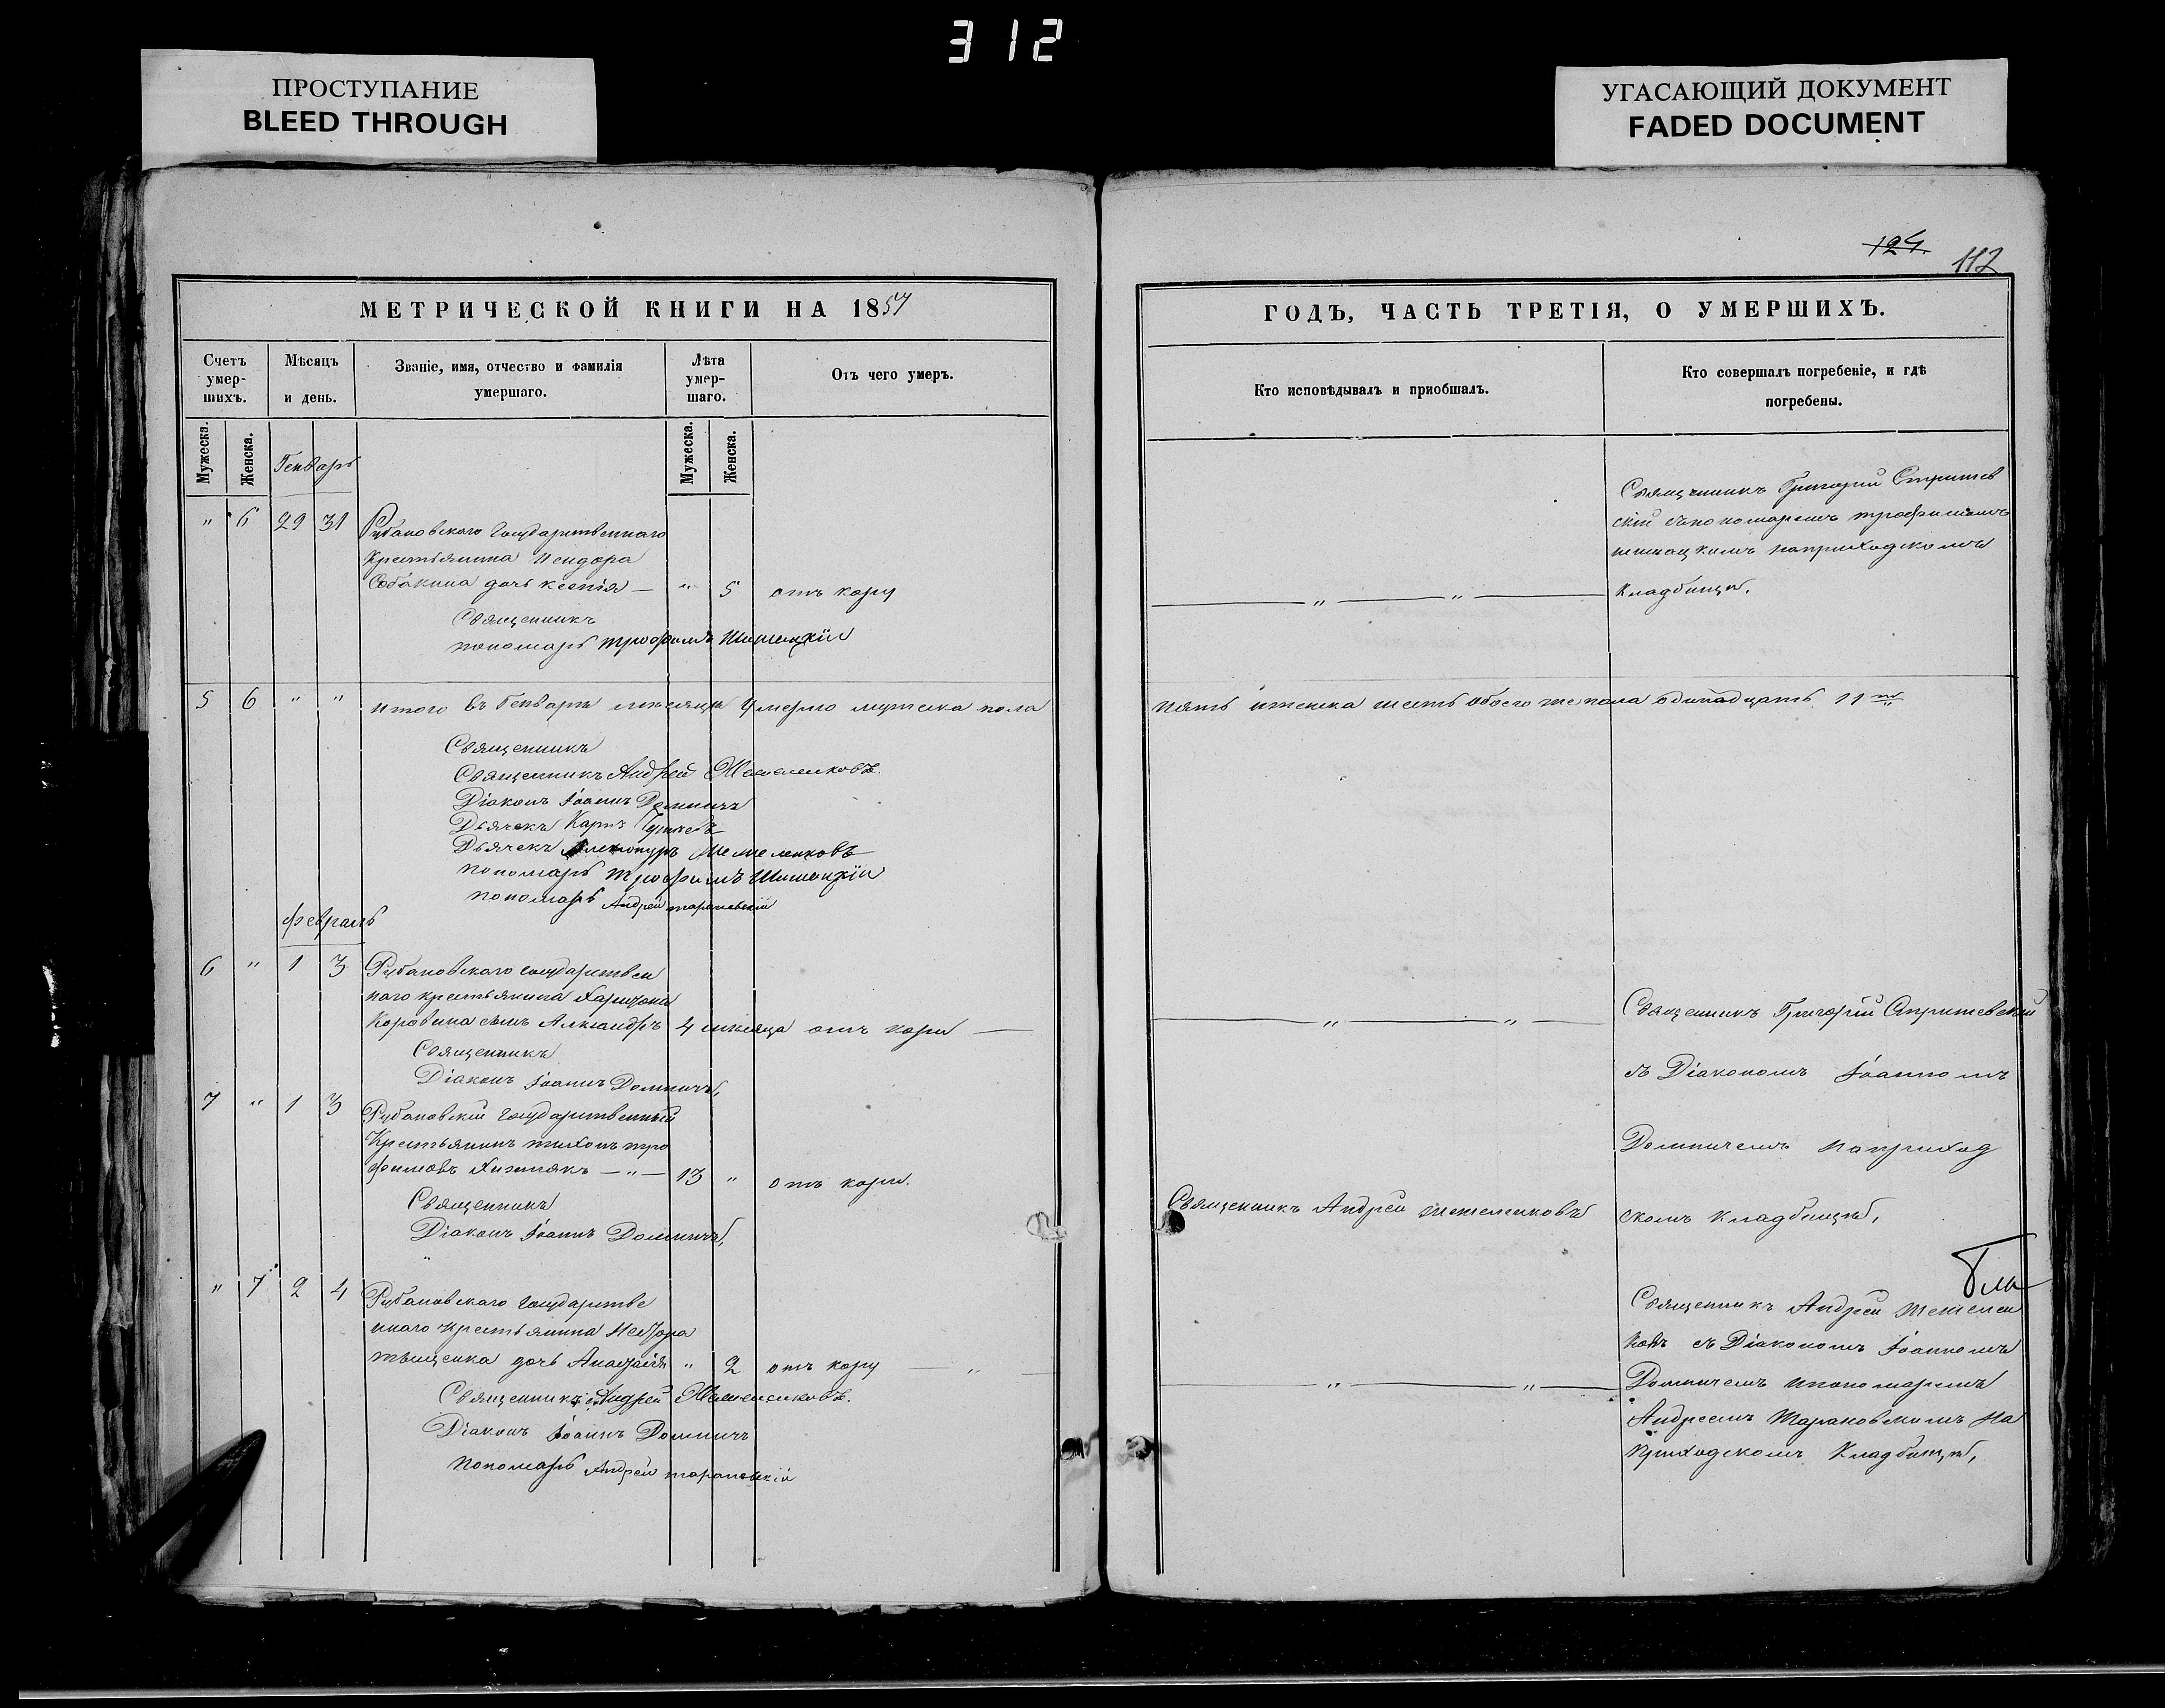 312
ПРОСТУПАНИЕ
BLEED THROUGH
УГАСАЮЩИЙ ДОКУМЕНТ
FADED DOCUMENT
124
112
МЕТРИЧЕСКОЙ КНИГИ НА 1857
Счетъ умер-шихъ.
Мѣсяцъ и день.
Званіе, имя, отчество и фамилія умершаго.
Лѣта умер-шаго.
Отъ чего умеръ.
Мужеска.
Женска.
Генварь
Мужеска.
Женска.
" 6 29 31 Рубановскаго Государственнаго
Крестьянина
Собакина дочь Ксенія — " 5 отъ кору
Священникъ
пономарь Трофимъ Шишацкій
5 6 " " итого въ Генварѣ месяцѣ умерло мужеска пола
Священникъ
Священникъ Андрей
Діаконъ Іоаннъ Домничъ
Дьячекъ Карпъ
Дьячекъ
пономарь Трофимъ Шишацкій
пономарь Андрей Тарановскій
Февраль
6 " 1 3 Рубановскаго государствен
наго крестьянина Харитона
Коровина сынъ Александръ 4 месяца отъ кори —
Священникъ
Діаконъ Іоаннъ Домничъ,
7 " 1 3 Рубановскій Государственный
Крестьянинъ Тихонъ Тро
фимовъ Хижнякъ — " — 13 " отъ кори.
Священникъ
Діаконъ Іоаннъ Домничъ,
" 7 2 4 Рубановскаго Государстве
ннаго крестьянина
дочь Анастасія " 2 отъ кору — "
Священникъ Андрей
Діаконъ Іоаннъ Домничъ
Пономарь Андрей Тарановскій
ГОДЪ, ЧАСТЬ ТРЕТІЯ, О УМЕРШИХЪ.
Кто исповѣдывалъ и приобщалъ.
Кто совершалъ погребеніе, и гдѣ
погребены.
Священникъ Григорій Стритев
скій съ пономаремъ Трофимомъ
Шишацкимъ на приходскомъ
— " — " — Кладбищѣ.
пять и женска шесть обоего же пола одинадцать 11
— " — " — Священникъ Григорій Стритевскій
съ Діакономъ Іоанномъ
Домничемъ на приход
Священникъ Андрей
скомъ кладбищѣ,
Священникъ Андрей
ковъ съ Діакономъ Іоанномъ
— " — " — Домничемъ и пономаремъ
Андреемъ Тарановскимъ на
Приходскомъ Кладбищѣ,